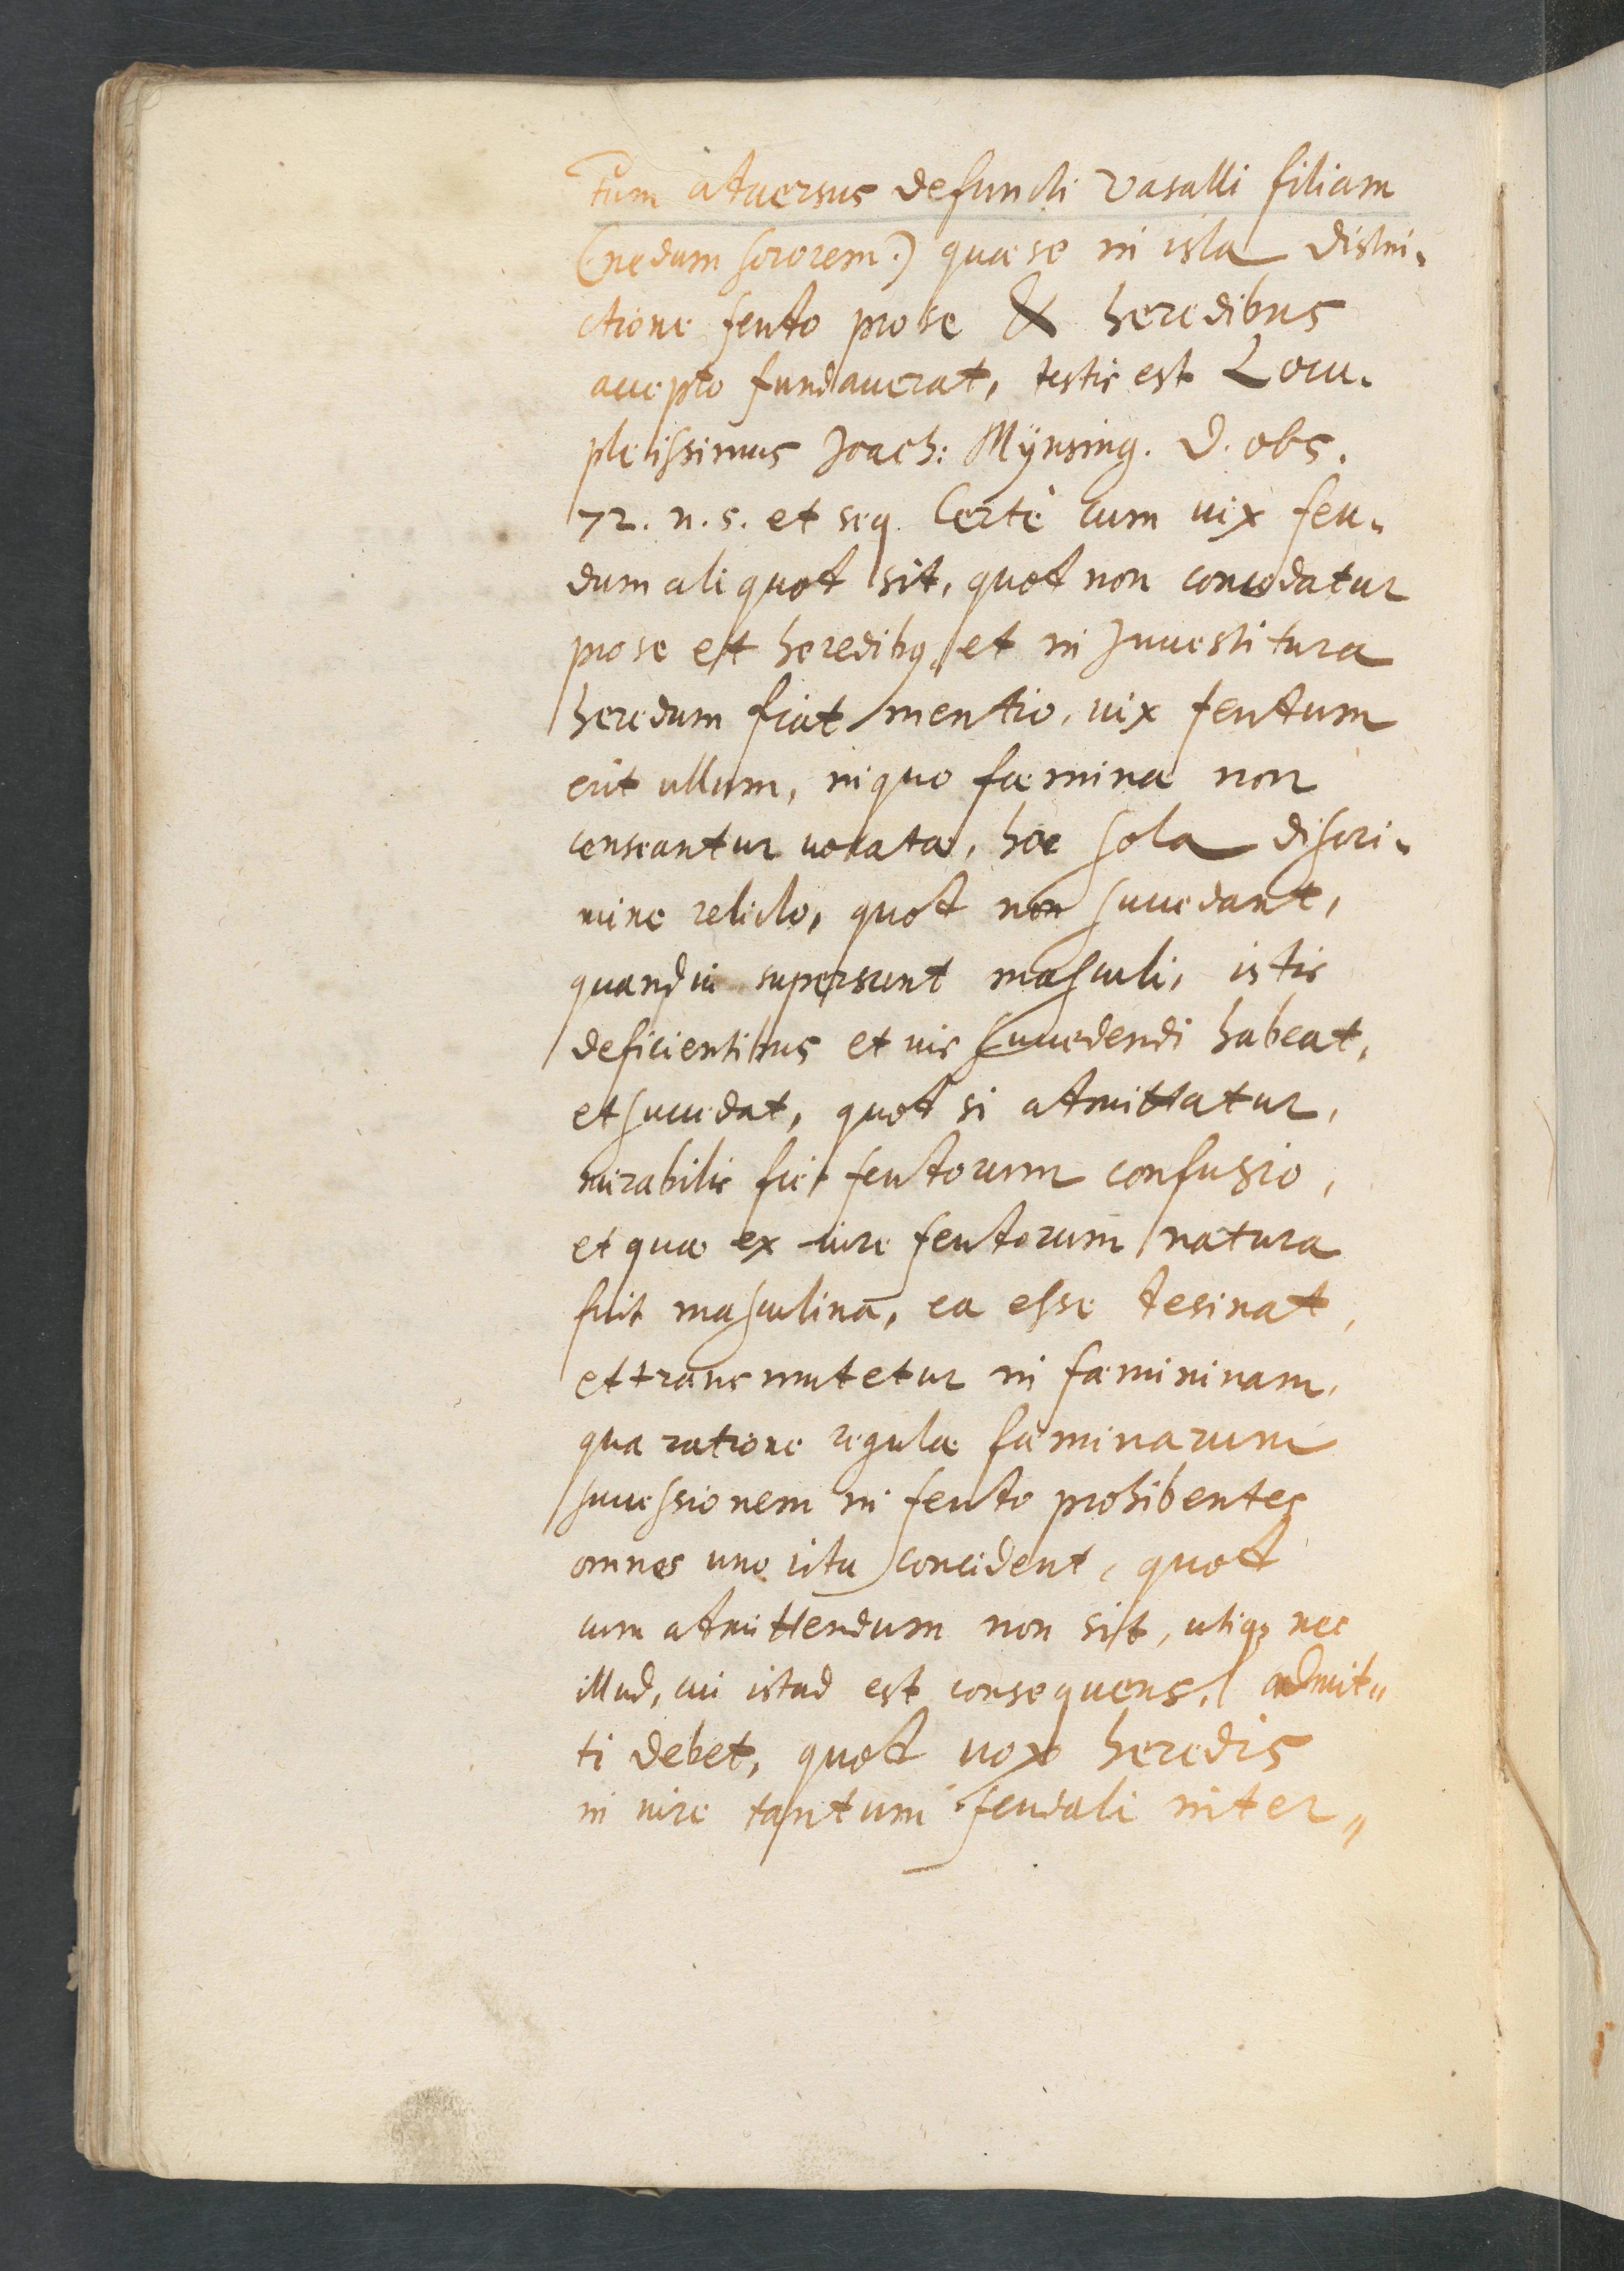 tum aduersus defuncti vasalli filiam
(nedum sororem.) quæ se in ista distin-
ctione feudo pro se & heredibus
accepto fundauerat, testis est Locu-
pletissimus Joach: Mÿnsing. D. obs.
72. n. 5. et seq. Certè cum uix feu-
dum aliquod sit, quod non concedatur
pro se et heredibq, et in Inuestitura
heredum fiat mentio, uix feudum
erit ullum, in quo fæminæ non
censeantur uocatæ, hoc solo discri-
mine relicto, quod non succedant,
quandiu supersunt masculi, istis
deficientibus et ius succedendi habeat,
et succedat, quod si admittatur,
mirabilis fiet feudorum confusio,
et quæ ex iure feudorum natura
fuit masculina, ea esse desinat,
et transmutetur in fæmininam,
qua ratione regulæ fæminarum
successionem in feudo prohibentes
omnes uno ictu concident, quod
cum admittendum non sit, utiq3 nec
illud, cui istud est consequens, admit"
ti debet, quod uox heredis
in iure tantum feudali inter"